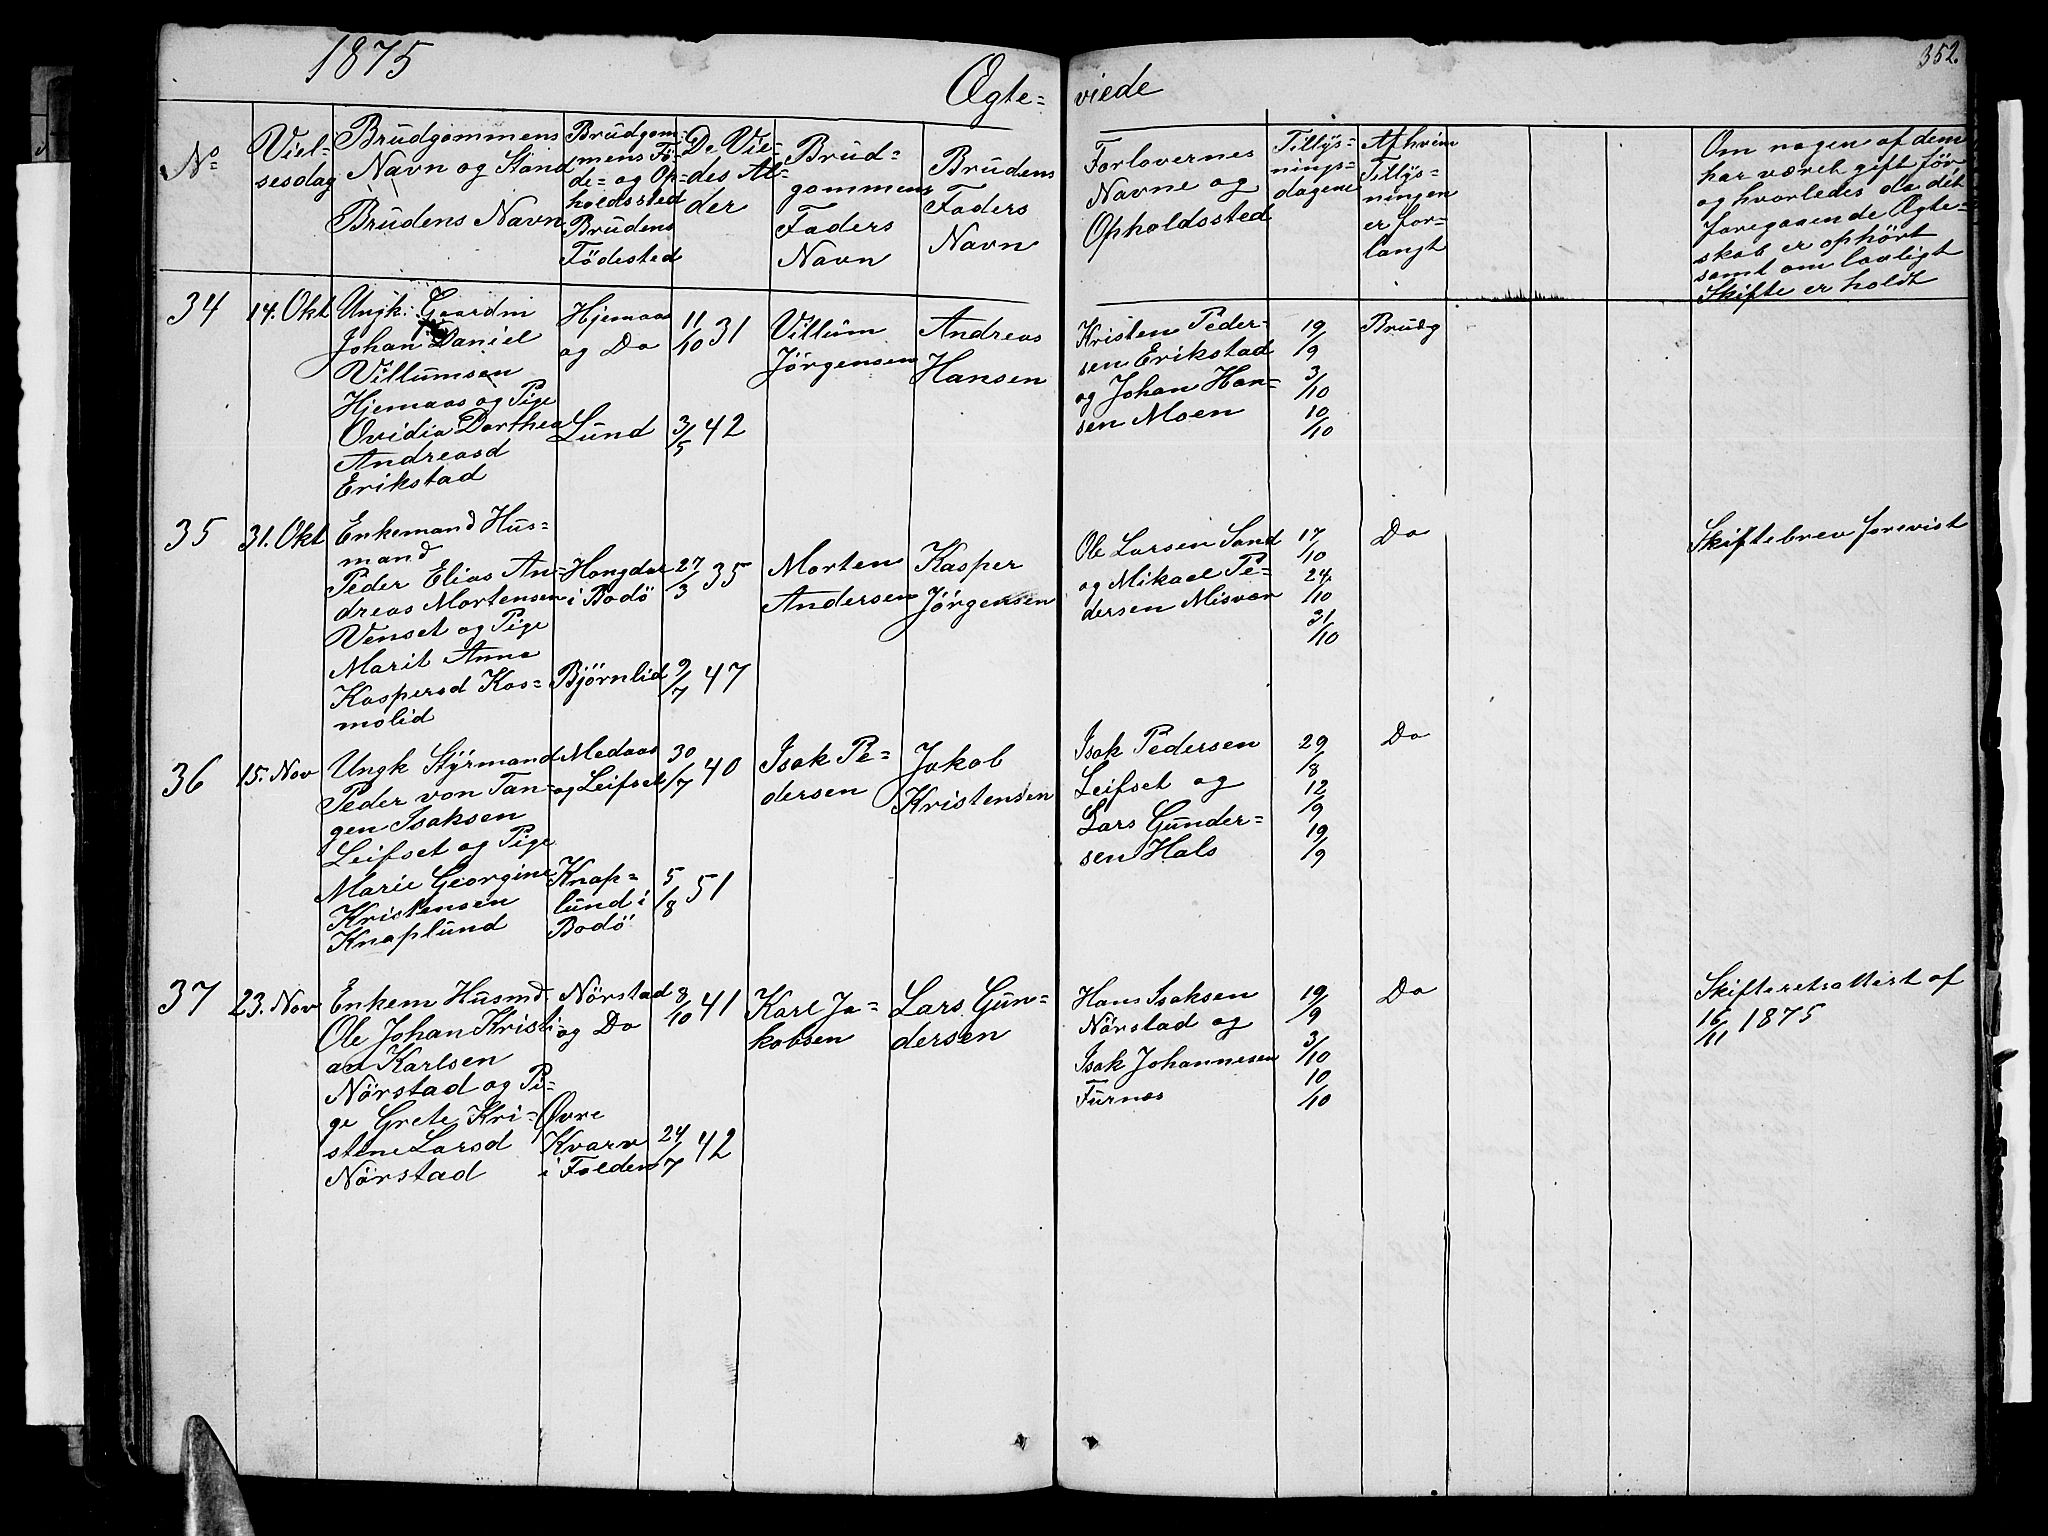 1875
352.
Ægte= viede
No
Viel-
sesdag
Brudgommens
Navn og Stand
Brudens Navn
Brudgom-
mens Fö-
de- og Op-
holdssted
Brudens
Födested
De Vie-
des Al-
der
Brud-
gommens
Faders
Navn
Brudens
Faders
Navn
Forlovernes
Navne og
Opholdssted
Tillys-
nings-
dagene
Af hvem
Tillys-
ningen
er for-
langt
Om nogen af dem
har været gift för
og hvorledes da det
foregaaende Ægte-
skab er ophört
samt om lovligt
Skifte er holdt
34
14. Okt
Ungk. Gaardm
Johan Daniel
Villumsen
Hjemaas og Pige
Ovidia Dorthea
Andreasd
Erikstad
Hjemaas
og Do
Lund
11/10 31
3/5 42
Villum
Jörgensen
Andreas
Hansen
Kristen Peder-
sen Erikstad
og Johan Han-
sen Moen
19/9
3/10
10/10
Brudg
35
31. Okt
Enkemand Hus=
mand
Peder Elias An-
dreas Mortensen
Venset og Pige
Marit Anna
Kaspersd Kos-
molid
Hongdar
i Bodö
Björnlid
27/3 35
9/7 47
Morten
Andersen
Kasper
Jörgensen
Ole Larsen Sand
og Mikael Pe-
dersen Misvær
17/10
24/10
31/10
Do
Skiftebrev forevist
36
15. Nov
Ungk Styrmand
Peder von Tan-
gen Isaksen
Leifset og Pige
Marie Georgine
Kristensen
Knaplund
Medaas
og Leifset
Knap-
lund i
Bodö
30/7 40
5/8 51
Isak Pe-
dersen
Jakob
Kristensen
Isak Pedersen
Leifset og
Lars Gunder-
sen Hals
29/8
12/9
19/9
Do
37
23. Nov
Enkem Husmd
Ole Johan Kristi-
an Karlsen
Nörstad og Pi-
ge Grete Kri-
stine Larsd
Nörstad
Nörstad
og Do
Övre
Kvarv
i Folden
8/10 41
24/7 42
Karl Ja-
kobsen
Lars Gun-
dersen
Hans Isaksen
Nörstad og
Isak Johannesen
Furnes
19/9
3/10
10/10
Do
Skifteretsattest af
16/11 1875